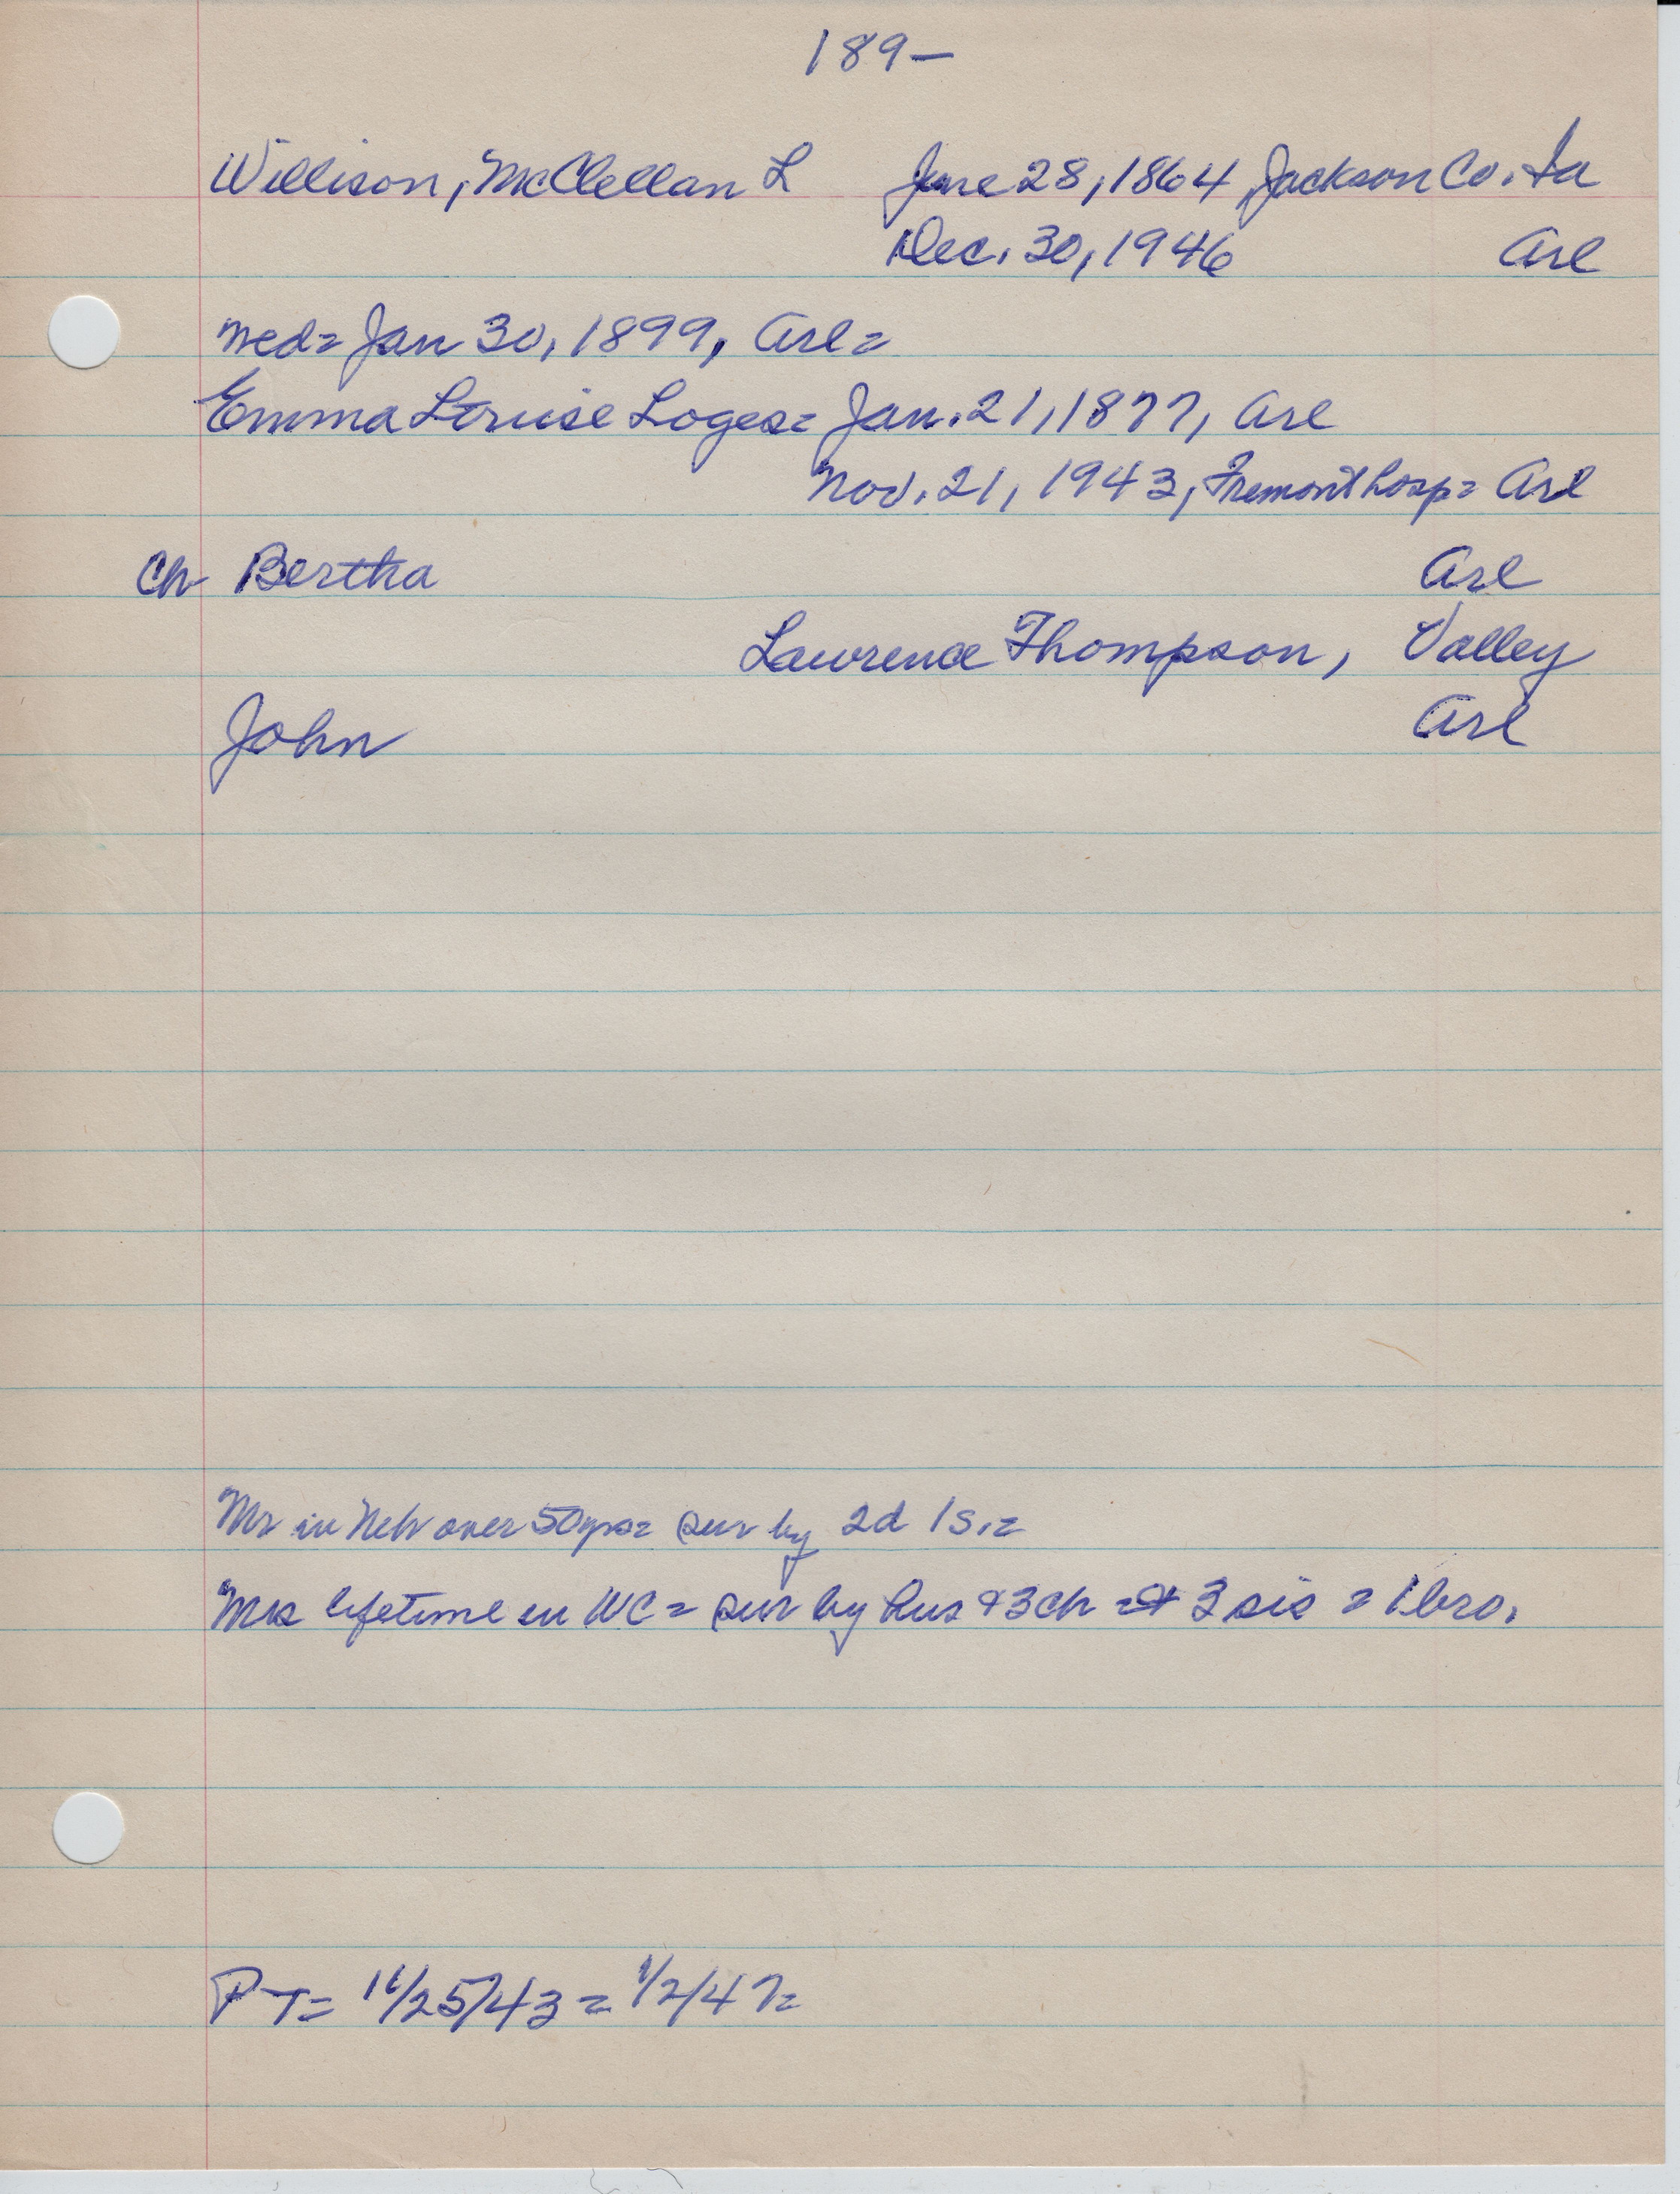 189-
Willison, McClellan L June 28, 1864, Jackson Co. Ia
Dec. 30, 1946 Arl
Wed= Jan 30, 1899, Arl=
Emma Louise Loges= Jan. 21, 1877, Arl
Nov. 21, 1943, Fremont hosp= Arl
Ch Bertha Arl
Lawrence Thompson, Valley
John Arl
Mr in Neb over 50 yrs= sur by 2d 1s.=
Mrs lifetime in WC= sur by hus & 3 ch = 3 sis = 1 bro.
PT= 11/25/43 = 1/2/47=